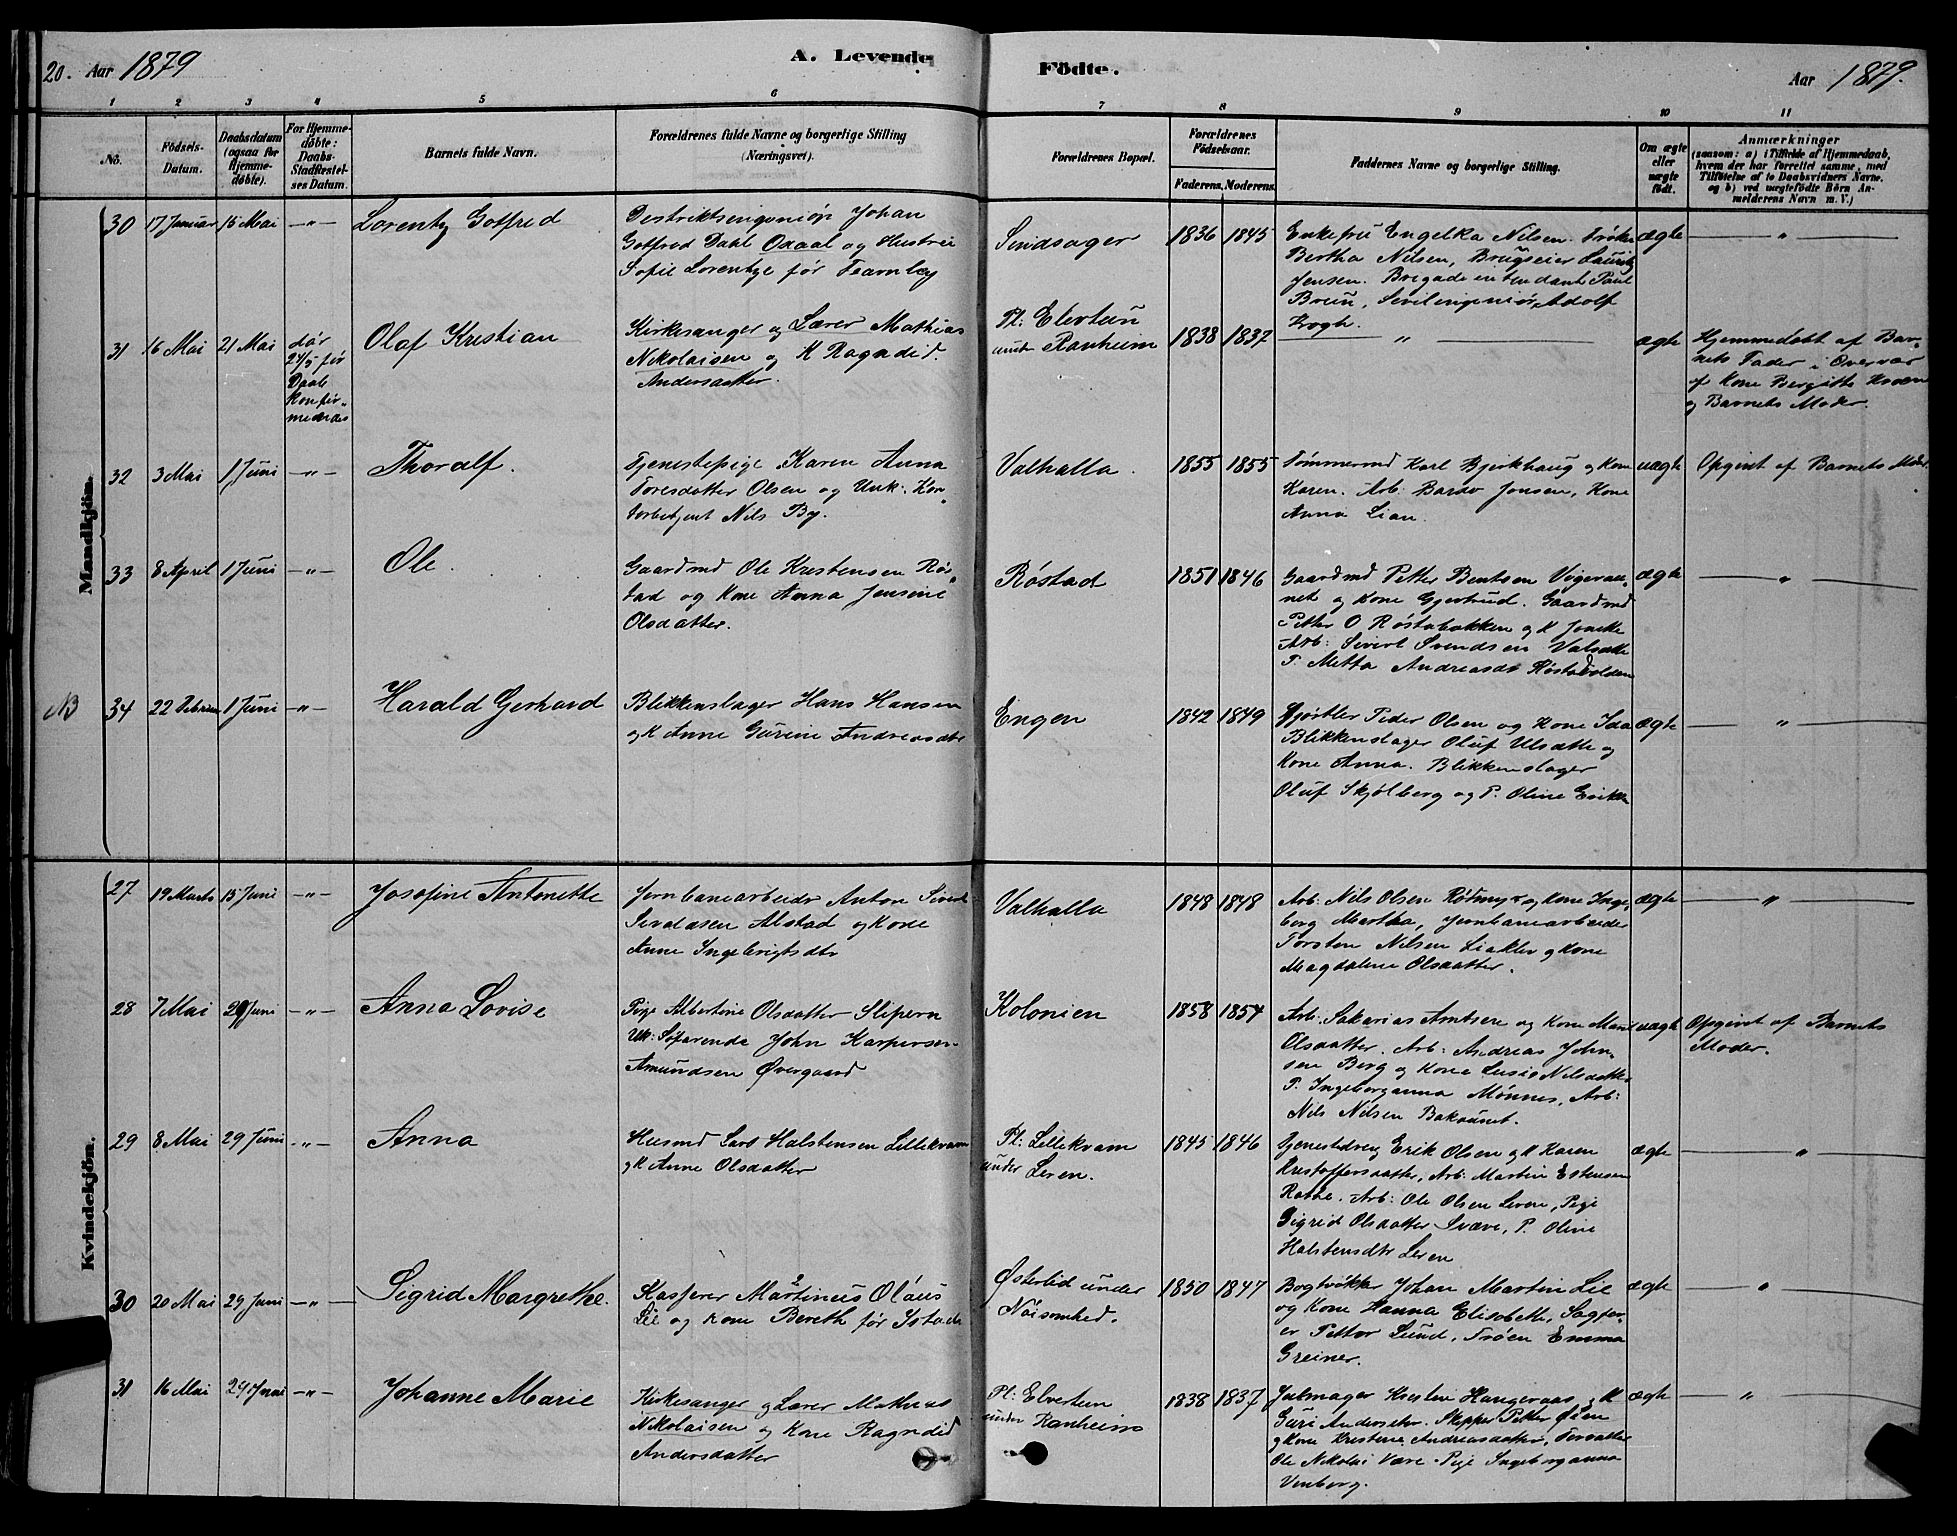 20. Aar 1879 A. Levende Födte. Aar 1879.
1 2 3 4 5 6 7 8 9 10 11
No. Födsels-Datum. Daabsdatum (ogsaa for Hjemmedöbte). For Hjemmedöbte: Daabs-Stadfæstelses Datum. Barnets fulde Navn. Forældrenes fulde Navne og borgerlige Stilling (Næringsvei). Forældrenes Bopæl. Forældrenes Födselsaar. Faderens. Moderens. Faddernes Navne og borgerlige Stilling. Om ægte eller uægte födt. Anmærkninger
(saasom: a) i Tilfælde af Hjemmedaab,
hvem der har forrettet samme, med
Tilföielse af to Daabsvidners Navne.
og b) ved uægtefödte Börn Anmelderens Navn m. V.)
Mandkjön.
30 17 Januar 15 Mai -"- Lorentz Gotfred
Destriktsingeniør Johan
Gotfred Daae Odaal og Hustru
Sofie Lorentze før Fearnley
Sindsager 1836 1845
Enkefru Engelka Nilsen. Frøken
Bertha Nilsen, Brugseier Lauritz
Jensen. Brigadeintendant Paul
Bruu, Sivilingeniør Adolf
Krogh.
ægte "
31 16 Mai 21 Mai
dør
24/5 før
Daab
konfir-
meredes
Olaf Kristian
Kirkesanger og Lærer Mathias
Nikolaisen og K Ragndid
Andersdatter.
Pl: Elvetun
under Ranheim
1838 1837 " ægte
Hjemmedøbt af Bar-
nets Fader i Overvær
af Kone Bergitte
og Barnets Moder.
32 3 Mai 1 Juni -"- Thoralf.
Tjenestepige Karen Anna
Toresdatter Olsen og Unk: Kon-
torbetjent Nils By.
Valhalla. 1855 1855
Tømmermd Karl Bjerkhaug og Kone
Karen. Arb: Bardo Jonsen, Kone
Anna Lian.
uægte Opgivet af Barnets Moder
33 8 April 1 Juni -"- Ole.
Gaardmd Ole Kristensen Rø-
stad og Kone Anna Jensine
Olsdatter.
Røstad 1851 1846
Gaardmd Petter Bentsen
og Kone Gjertrud. Gaardmd
Petter O Røstabakken og K
Arb: Sivert Svendsen
P. Metta Andreasdr
ægte "
NB 34 22 Februar 1 Juni -"- Harald Gerhard
Blikkenslager Hans Hansen
og K Anne Gurine Andreasdtr
Engen 1842 1849
Peder Olsen og Kone Ida
Blikkenslager Oluf Ulsætte og
Kone Anna. Blikkenslager
Oluf Skjølberg og P. Oline
ægte "
Kvindekjön.
27 19 Marts 15 Juni -"- Josefine Antonette
Jernbanearbeider Anton
Alstad og Kone
Anne Ingebrigtsdtr
Valhalla 1848 1848
Arb: Nils Olsen Rødmyr og Kone Inge-
borg Martha, Jernbanearbeider
Torsten Nilsen Liaklev og Kone
Magdalene Olsdatter.
ægte "
28 7 Mai 29 Juni -"- Anna Lovise
Pige Albertine Olsdatter Slipern
Uk: Søfarende John Kaspersen
Amundsen Øvergaard
Kolonien 1858 1854
Arb: Sakarias Arntsen og Kone
Olsdatter. Arb: Andreas John-
sen Berg og Kone Lusie Nilsdatter
P. Ingeborganna Mønnes, Arb:
Nils Nilsen Bakaunet.
uægte
Opgivet af Barnets
Moder.
29 8 Mai 29 Juni -"- Anna
Husmd Lars Halstensen Lillekvam
og K Anne Olsdatter
Pl: Lillekvam
under Leren.
1845 1846
Tjenestedreng Erik Olsen og K Karen
Kristoffersdatter, Arb: Martin Estensen
Rathe. Arb: Ole Olsen Leren, Pige
Sigrid Olsdatter Svæve, P. Oline
Halstensdtr Leren
ægte "
30 20 Mai 29 Juni -"- Sigrid Margrethe.
Kasserer Martinus Olaus
Lie og Kone Bereth før Ystad
Østerlid under
Nøisomhed.
1850 1847
Bogtrykker Johan Martin Lie
og Kone Hanna Elisabeth, Sagfør-
er Petter Lund, Frøken Emma
Greiner.
ægte "
31 16 Mai 29 Juni -"- Johanne Marie
Kirkesanger og Lærer Mathias
Nikolaisen og Kone Ragndid
Andersdatter
Pl: Elvetun
under Ranheim
1838 1837
Kristen Haugeraas og K
Guri Andersdtr. Skipper Petter
og Kone Kristine Andreasdatter,
Ole Nikolai Være. Pige Ingeborganna
Vinborg.
ægte "